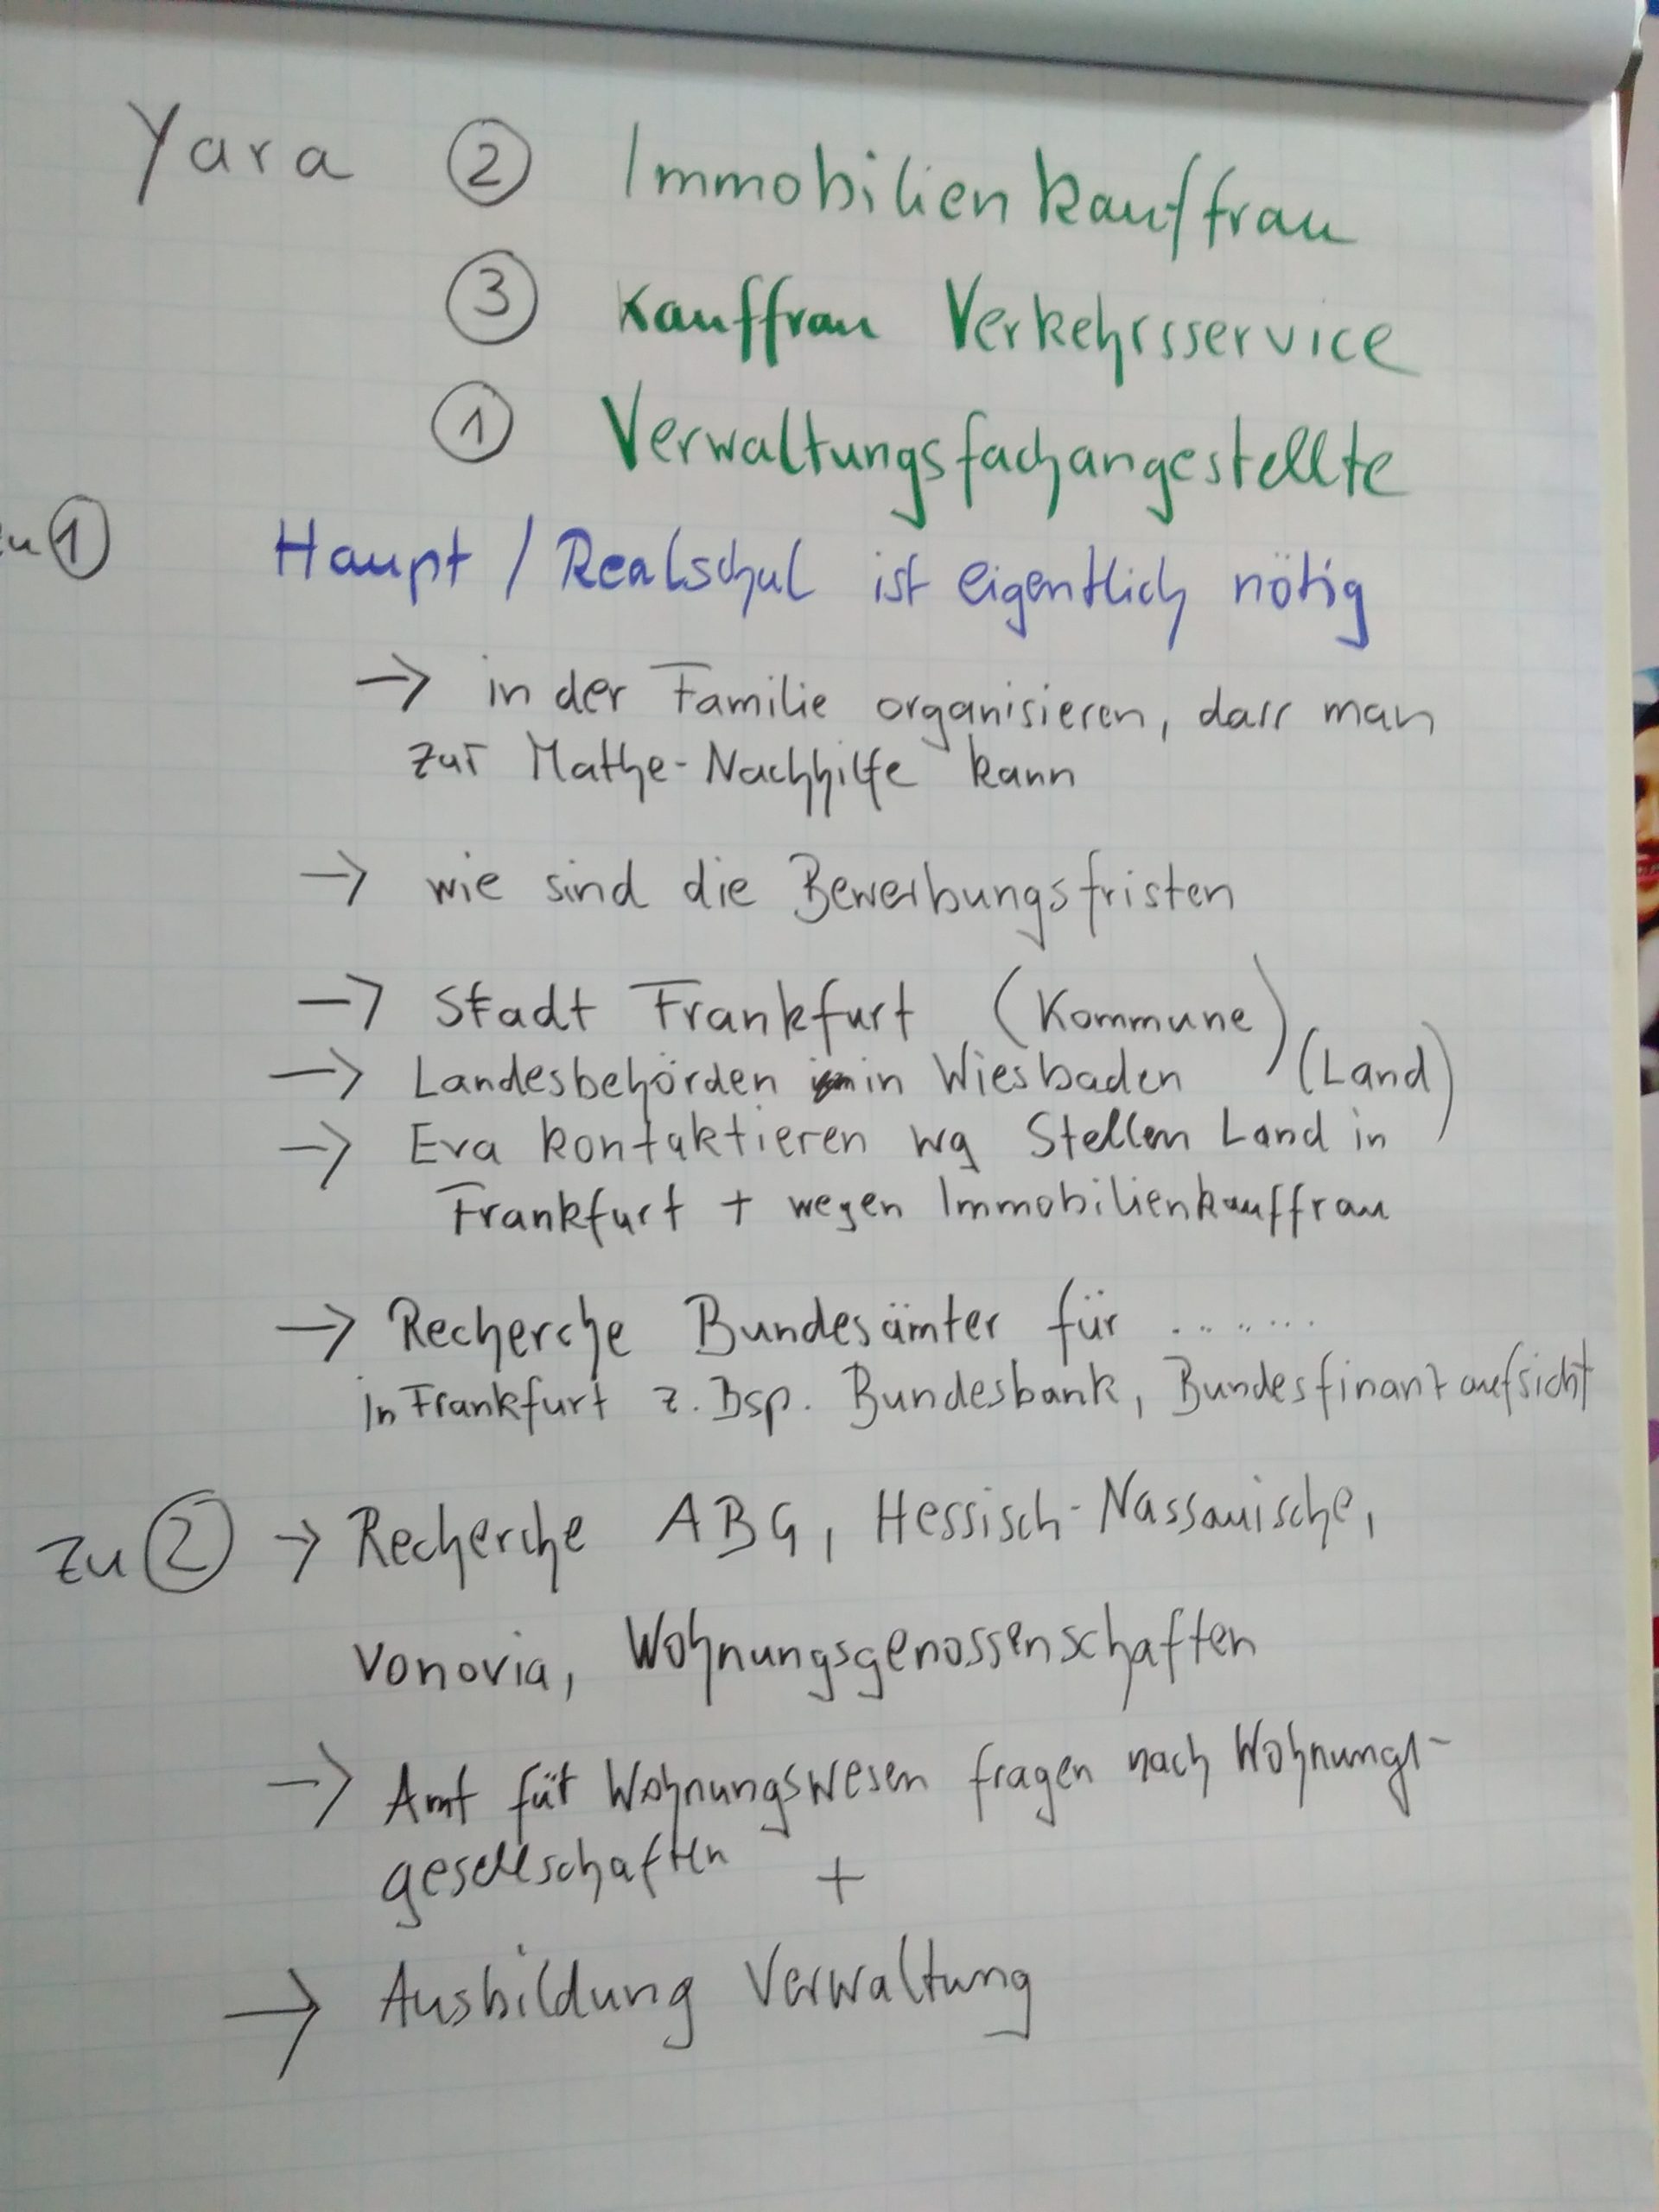 Yara ② Immobilienkauffrau
③ Kauffrau Verkehrsservice
① Verwaltungsfachangestellte
zu ① Haupt / Realschul ist eigentlich nötig
→ in der Familie organisieren, dass man
zur Mathe-Nachhilfe kann
→ wie sind die Bewerbungsfristen
→ Stadt Frankfurt (Kommune)
→ Landesbehörden in Wiesbaden (Land)
→ Eva kontaktieren wg Stellen Land in
Frankfurt + wegen Immobilienkauffrau
→ Recherche Bundesämter für ........
in Frankfurt z. Bsp. Bundesbank, Bundesfinanzaufsicht
zu ② → Recherche ABG, Hessisch-Nassauische,
Vonovia, Wohnungsgenossenschaften
→ Amt für Wohnungswesen fragen nach Wohnungs-
gesellschaften +
→ Ausbildung Verwaltung